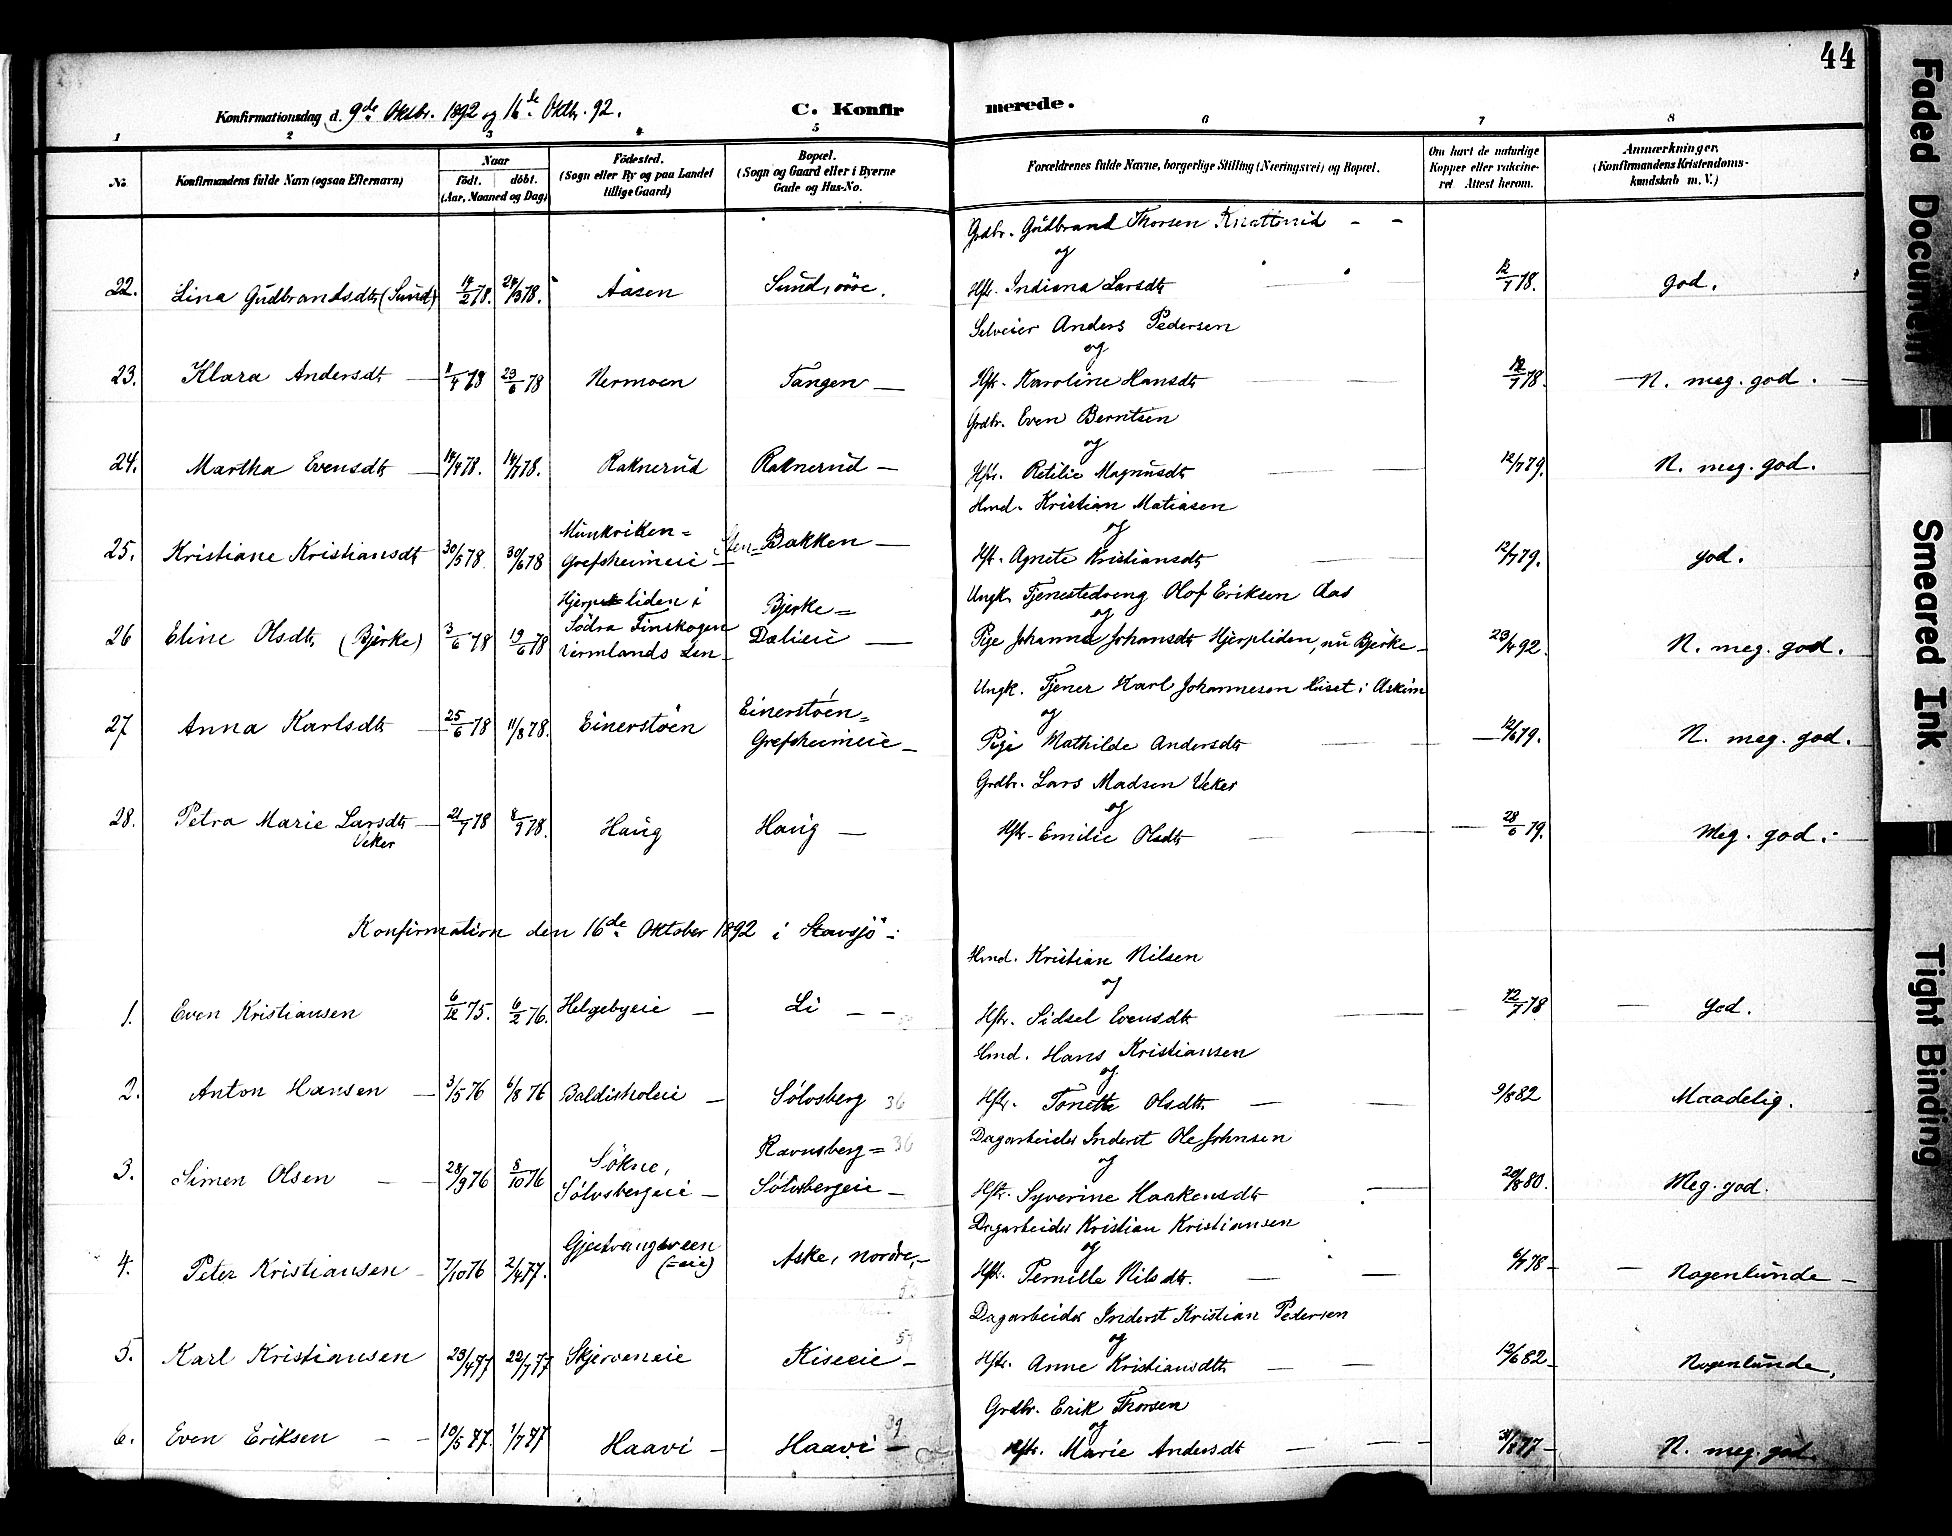 44
Konfirmationsdag d. 9de Oktbr. 1892 og 16de Oktb. 92.
C. Konfirmerede.
1 2 3 4 5 6 7 8
No. Konfirmandens fulde Navn (ogsaa Efternavn) Naar född. döbt. (Aar, Maaned og Dag) Födested. (Sogn eller By og paa Landet tillige Gaard) Bopæl. (Sogn og Gaard eller i Byerne Gade og Hus-No. Forældrenes fulde Navne, borgerlige Stilling (Næringsvei) og Bopæl. Om havt de naturlige Kopper eller vakcineret. Attest herom. Anmærkninger. (Konfirmandens Kristendomskundskab m. V.)
Grdbr. Gudbrand Thorsen Knattrud - -
og
22. Lina Gudbrandsdtr (Sund) 14/2 78. 24/3 78. Aasen Sund, övre. Hstr. Indiana Larsdtr 12/7 78. god.
Selveier Anders Pedersen
og
23. Klara Andersdtr 1/4 78 23/6 78 Nermoen Tangen Hstr. Karoline Hansdtr 12/7 78. N. meg. god.
Grdbr. Even Berntsen
og
24. Martha Evensdtr 14/4 78. 14/7 78. Raknerud Raknerud Hstr. Retilie Magnusdtr 12/7 79. N. meg. god.
Hmd. Kristian Matiasen
og
25. Kristiane Kristiansdtr 30/5 78. 30/6 78 Munkriken= Grefsheimeie Sten=Bakken Hstr. Agnete Kristiansdtr 12/7 79. god.
Ungk. Tjenestedreng Olof Eriksen Aas
og
26 Eline Olsdtr (Bjerke) 3/6 78 19/6 78 Hjerpeliden i Södra Finskogen Vermlands Len Bjerke= Dælieie Pige Johanna Johansdtr Hjerpliden, nu Bjerke 23/4 92. N. meg. god.
Ungk. Tjener Karl Johannesen Huset i Askim
og
27 Anna Karlsdtr 25/6 78 11/8 78. Einerstöen Einerstöen= Grefsheimeie Pige Mathilde Andersdtr 12/6 79. N. meg. god.
Grdbr. Lars Madsen Veker
og
28. Petra Marie Larsdtr Veker 21/7 78 8/9 78. Haug Haug Hstr. Emilie Olsdtr 28/6 79. Meg. god.
Konfirmation den 16de Oktober 1892 i Stavsjö
Hmd. Kristian Nilsen
og
1. Even Kristiansen 6/12 75. 6/2 76. Helgebyeie Li Hstr. Sidsel Evensdtr 12/7 78 God.
Hmd. Hans Kristiansen
og
2. Anton Hansen 3/5 76 6/8 76 Baldisholeie Sölvsberg 36 Hstr. Tonette Olsdtr 9/8 82 Maadelig.
Dagarbeider Inderst Ole Johnsen
og
3. Simen Olsen 28/9 76 8/10 76 Sökne, Sölvsbergeie Ravnsberg= 36 Sölvsbergeie Hstr. Syverine Haakensdtr 20/8 80. Meg. god.
Dagarbeider Kristian Kristiansen
og
4. Peter Kristiansen 7/10 76 2/4 77. Gjeitvangveen (=eie) Aske, nordre, Hstr. Pernille Nilsdtr. 6/7 78 Nogenlunde
Dagarbeider Inderst Kristian Pedersen
og
5. Karl Kristiansen 23/4 77 22/7 77 Skjerveneie Kiseeie Hstr. Anne Kristiansdtr 12/6 82 Nogenlunde.
Grdbr. Erik Thorsen
og
6. Even Eriksen 10/5 77. 1/7 77 Haavi Haavi 39 Hstr. Marie Andersdtr N. meg. god.
Faded Document
Smeared Ink.
Tight Binding